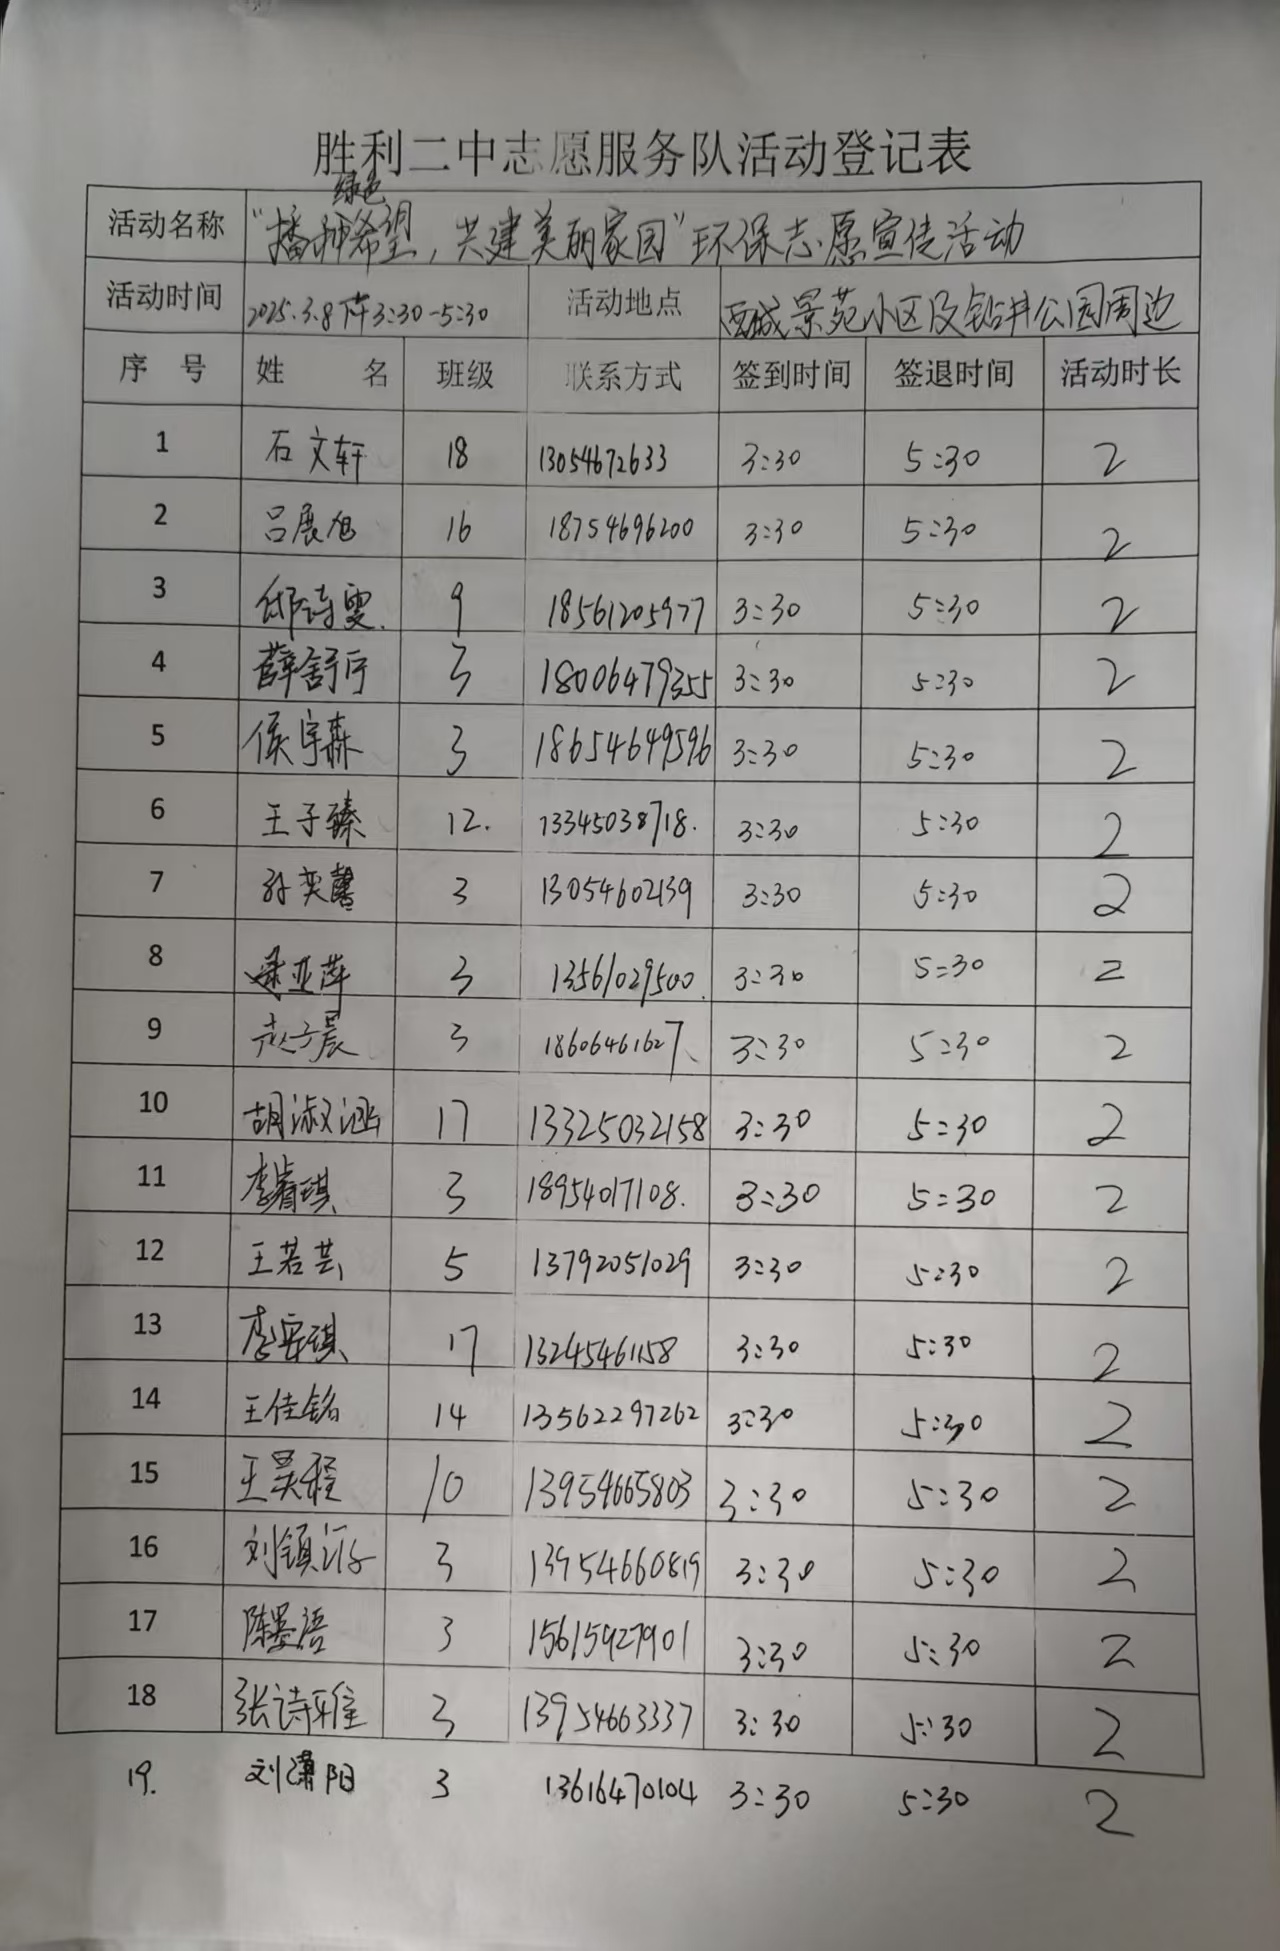 胜利二中志愿服务队活动登记表
活动名称 "播种绿色希望，共建美丽家园"环保志愿宣传活动
活动时间 2025.3.8下午3:30-5:30 活动地点 西城景苑小区及钻井公园周边
序号 姓名 班级 联系方式 签到时间 签退时间 活动时长
1 石文轩 18 13054672633 3:30 5:30 2
2 吕展旭 16 18754696200 3:30 5:30 2
3 邱诗雯 9 18561205977 3:30 5:30 2
4 薛舒 3 18006479355 3:30 5:30 2
5 侯宇森 3 18654649596 3:30 5:30 2
6 王子臻 12. 13345038718. 3:30 5:30 2
7 孙奕馨 3 13054602139 3:30 5:30 2
8 亚萍 3 13561029500. 3:30 5:30 2
9 赵子晨 3 18606461627 3:30 5:30 2
10 胡淑涵 17 13325032158 3:30 5:30 2
11 李睿琪 3 18954017108. 3:30 5:30 2
12 王若芸 5 13792051029 3:30 5:30 2
13 李安琪 17 13245461158 3:30 5:30 2
14 王佳铭 14 13562297262 3:30 5:30 2
15 王昊程 10 13954665803 3:30 5:30 2
16 刘镇 3 13954660819 3:30 5:30 2
17 陈墨语 3 15615927901 3:30 5:30 2
18 张诗雅 3 13954663337 3:30 5:30 2
19. 刘潇阳 3 13616470104 3:30 5:30 2